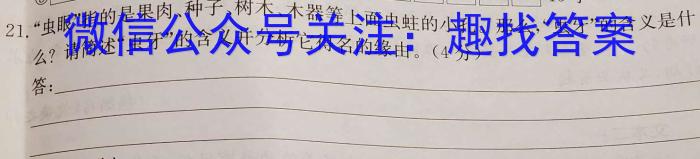 21.“虫眼”指的是果肉、种子、树木、木器等上面虫蛀的小 “ 牙”的含义是什
么？请简述“虫牙”的含义并分析它得名的缘由。（4分）
微信公众号关注：趣找答案
答：